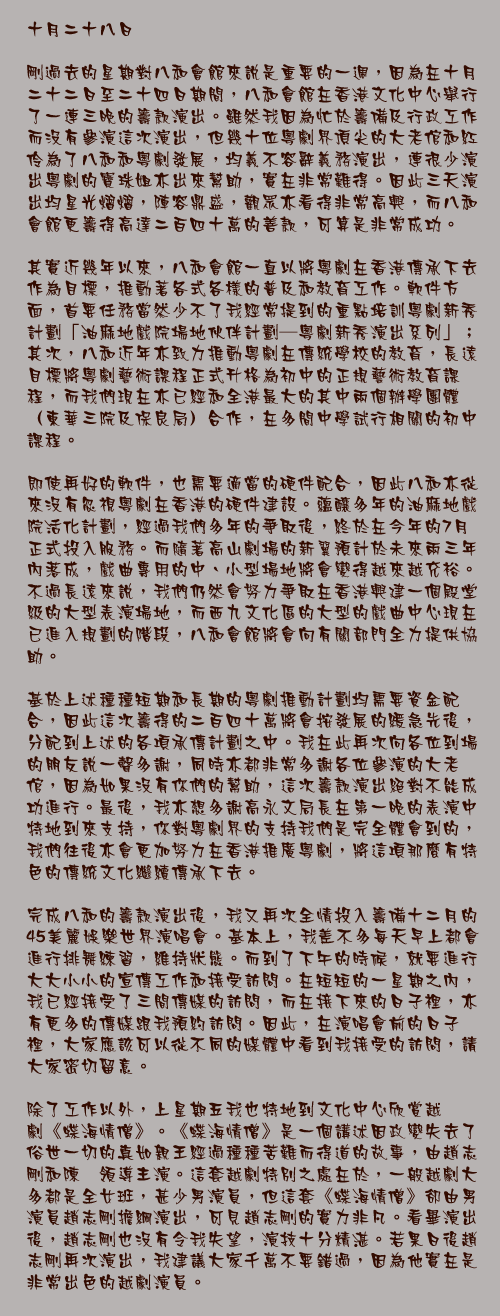 十月二十八日
剛過去的星期對八和會館來說是重要的一週，因為在十月
二十二日至二十四日期間，八和會館在香港文化中心舉行
了一連三晚的籌款演出。雖然我因為忙於籌備及行政工作
而沒有參演這次演出，但幾十位粵劇界頂尖的大老倌和紅
伶為了八和和粵劇發展，均義不容辭義務演出，連很少演
出粵劇的寶珠姐亦出來幫助，實在非常難得。因此三天演
出均星光熠熠，陣容鼎盛，觀眾亦看得非常高興，而八和
會館更籌得高達二百四十萬的善款，可算是非常成功。
其實近幾年以來，八和會館一直以將粵劇在香港傳承下去
作為目標，推動著各式各樣的普及和教育工作。軟件方
面，首要任務當然少不了我經常提到的重點培訓粵劇新秀
計劃「油麻地戲院場地伙伴計劃—粵劇新秀演出系列」；
其次，八和近年亦致力推動粵劇在傳統學校的教育，長遠
目標將粵劇藝術課程正式升格為初中的正規藝術教育課
程，而我們現在亦已經和全港最大的其中兩個辦學團體
（東華三院及保良局）合作，在多間中學試行相關的初中
課程。
即使再好的軟件，也需要適當的硬件配合，因此八和亦從
來沒有忽視粵劇在香港的硬件建設。蘊釀多年的油麻地戲
院活化計劃，經過我們多年的爭取後，終於在今年的7月
正式投入服務。而隨著高山劇場的新翼預計於未來兩三年
內落成，戲曲專用的中、小型場地將會變得越來越充裕。
不過長遠來說，我們仍然會努力爭取在香港興建一個殿堂
級的大型表演場地，而西九文化區的大型的戲曲中心現在
已進入規劃的階段，八和會館將會向有關部門全力提供協
助。
基於上述種種短期和長期的粵劇推動計劃均需要資金配
合，因此這次籌得的二百四十萬將會按發展的緩急先後，
分配到上述的各項承傳計劃之中。我在此再次向各位到場
的朋友說一聲多謝，同時亦都非常多謝各位參演的大老
倌，因為如果沒有你們的幫助，這次籌款演出絕對不能成
功進行。最後，我亦想多謝高永文局長在第一晚的表演中
特地到來支持，你對粵劇界的支持我們是完全體會到的，
我們往後亦會更加努力在香港推廣粵劇，將這項那麼有特
色的傳統文化繼續傳承下去。
完成八和的籌款演出後，我又再次全情投入籌備十二月的
45美麗娛樂世界演唱會。基本上，我差不多每天早上都會
進行排舞練習，維持狀態。而到了下午的時候，就要進行
大大小小的宣傳工作和接受訪問。在短短的一星期之內，
我已經接受了三間傳媒的訪問，而在接下來的日子裡，亦
有更多的傳媒跟我預約訪問。因此，在演唱會前的日子
裡，大家應該可以從不同的媒體中看到我接受的訪問，請
大家密切留意。
除了工作以外，上星期五我也特地到文化中心欣賞越
劇《蝶海情僧》。《蝶海情僧》是一個講述因政變失去了
俗世一切的真如親王經過種種苦難而得道的故事，由趙志
剛和陳　領導主演。這套越劇特別之處在於，一般越劇大
多都是全女班，甚少男演員，但這套《蝶海情僧》卻由男
演員趙志剛擔綱演出，可見趙志剛的實力非凡。看畢演出
後，趙志剛也沒有令我失望，演技十分精湛。若果日後趙
志剛再次演出，我建議大家千萬不要錯過，因為他實在是
非常出色的越劇演員。